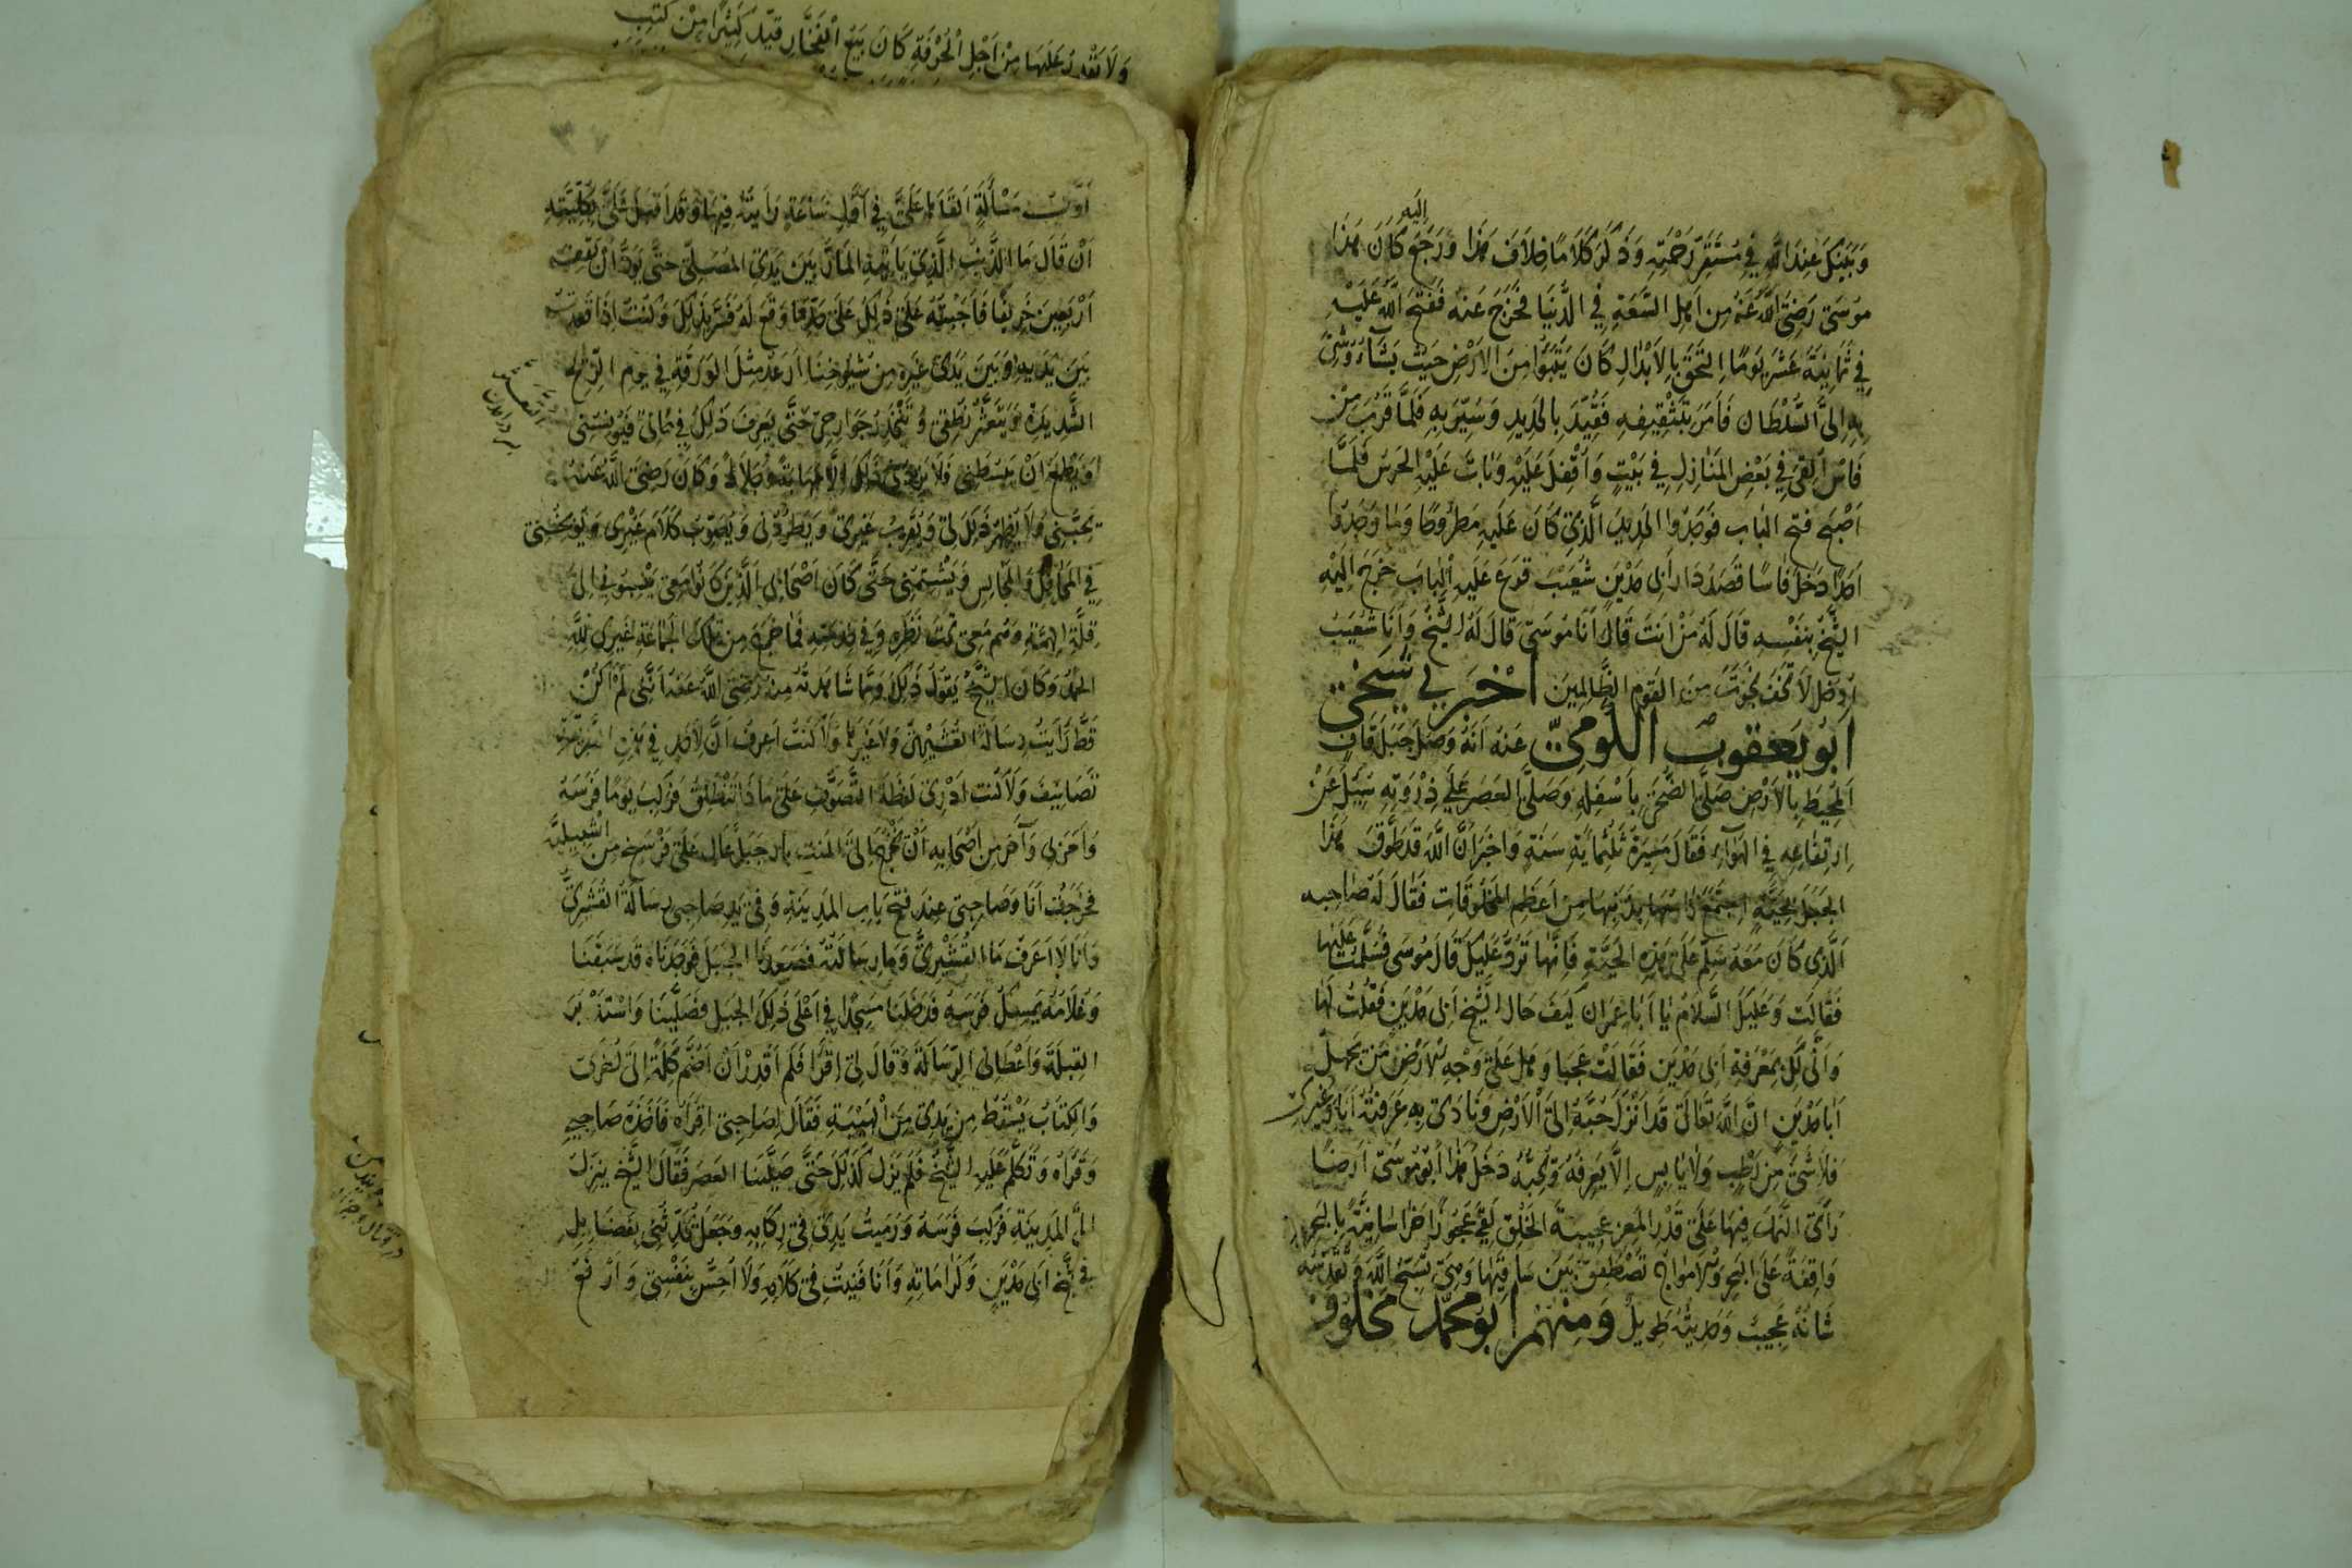 وَبَيْنَكَ عِنْدَ اللّٰهِ فِي مُسْتَقَرِّ رَحْمَتِهِ وَذَكَرَ كَلَامًا خِلَافَ هٰذَا وَرَجَعَ إِلَيْهِ كَانَ هٰذَا
مُوسَى رَضِيَ اللّٰهُ عَنْهُ مِنْ أَهْلِ السَّعَةِ فِي الدُّنْيَا فَخَرَجَ عَنْهُ فَفَتَحَ اللّٰهُ عَلَيْهِ
فِي ثَمَانِيَةَ عَشَرَ يَوْمًا الْتَحَقَ بِالْأَبْدَالِ كَانَ يَتَبَوَّأُ مِنَ الْأَرْضِ حَيْثُ يَشَاءُ وَشِيَ
بِهِ إِلَى السُّلْطَانِ فَأَمَرَ بِتَثْقِيفِهِ فَقُيِّدَ بِالْحَدِيدِ وَسُيِّرَ بِهِ فَلَمَّا قَرُبَ مِنْ
فَاسَ أُلْقِيَ فِي بَعْضِ الْمَنَازِلِ فِي بَيْتٍ وَأُقْفِلَ عَلَيْهِ وَبَاتَ عَلَيْهِ الْحَرَسُ فَلَمَّا
أَصْبَحَ فُتِحَ الْبَابُ فَوَجَدُوا الْحَدِيدَ الَّذِي كَانَ عَلَيْهِ مَطْرُوحًا وَمَا وَجَدُوا
أَحَدًا دَخَلَ فَاسًا قَصَدَ دَارَ أَبِي مَدْيَنَ شُعَيْبٍ قَرَعَ عَلَيْهِ الْبَابَ خَرَجَ إِلَيْهِ
الشَّيْخُ بِنَفْسِهِ قَالَ لَهُ مَنْ أَنْتَ قَالَ أَنَا مُوسَى قَالَ لَهُ الشَّيْخُ وَأَنَا شُعَيْبُ
ادْخُلْ لَا تَخَفْ نَجَوْتَ مِنَ الْقَوْمِ الظَّالِمِينَ أَخْبَرَنِي شَيْخِي
أَبُو يَعْقُوبَ الكُومِيّ عَنْهُ أَنَّهُ وَصَلَ جَبَلَ قَافٍ
الْمُحِيطَ بِالْأَرْضِ صَلَّى الضُّحَى بِأَسْفَلِهِ وَصَلَّى الْعَصْرَ عَلَى ذِرْوَتِهِ سُئِلَ عَنْ
ارْتِفَاعِهِ فِي الْهَوَاءِ فَقَالَ مَسِيرَةَ ثَلٰثُمِائَةِ سَنَةٍ وَأَخْبَرَ أَنَّ اللّٰهَ قَدْ طَوَّقَ هٰذَا
الْجَبَلَ بِحَيَّةٍ اجْتَمَعَ رَأْسُهَا بِذَنَبِهَا مِنْ أَعْظَمِ الْمَخْلُوقَاتِ فَقَالَ لَهُ صَاحِبُهُ
الَّذِي كَانَ مَعَهُ سَلِّمْ عَلَى هٰذِهِ الْحَيَّةِ فَإِنَّهَا تَرُدُّ عَلَيْكَ قَالَ مُوسَى فَسَلَّمْتُ عَلَيْهَا
فَقَالَتْ وَعَلَيْكَ السَّلَامُ يَا أَبَا عِمْرَانَ كَيْفَ حَالُ الشَّيْخِ أَبِي مَدْيَنَ فَقُلْتُ لَهَا
وَأَنَّى لَكِ بِمَعْرِفَةِ أَبِي مَدْيَنَ فَقَالَتْ عَجَبًا وَهَلْ عَلَى وَجْهِ الْأَرْضِ مَنْ يَجْهَلُ
أَبَا مَدْيَنَ إِنَّ اللّٰهَ تَعَالَى قَدْ أَنْزَلَ حُبَّهُ إِلَى الْأَرْضِ وَنَادَى بِهِ عَرَفْتُهُ أَنَا وَغَيْرِي
فَلَا شَيْءَ مِنْ رَطْبٍ وَلَا يَابِسٍ إِلَّا يَعْرِفُهُ وَيُحِبُّهُ دَخَلَ هٰذَا أَبُو مُوسَى أَرْضًا
رَأَى النَّمْلَ فِيهَا عَلَى قَدْرِ الْمَعِزِ عَجِيبَةَ الْخَلْقِ لَقِيَ عَجُوزًا خُرَاسَانِيَّةً بِالْبَحْرِ
وَاقِفَةً عَلَى الْبَحْرِ وَالْأَمْوَاجُ تَصْطَفِقُ بَيْنَ سَاقَيْهَا وَهِيَ تُسَبِّحُ اللّٰهَ وَتُقَدِّسُهُ
شَأْنُهُ عَجِيبٌ وَحَدِيثُهُ طَوِيلٌ وَمِنْهُمْ أَبُو مُحَمَّدٍ مَخْلُوفٌ
وَلَا تَقْدِرُ عَلَيْهَا مِنْ أَجْلِ الْحُرْفَةِ كَانَ يَبِيعُ الْفَخَّارَ قَيَّدَ كَثِيرًا مِنْ كُتُبِ
مَسْأَلَةٍ أَلْقَاهَا عَلَيَّ فِي أَوَّلِ سَاعَةٍ رَأَيْتُهُ فِيهَا وَقَدْ أَقْبَلَ عَلَيَّ بِكُلِّيَّتِهِ
أَنْ قَالَ مَا الذَّنْبُ الَّذِي يَأْتِيهِ الْمَارُّ بَيْنَ يَدَيِ الْمُصَلِّي حَتَّى يَوَدَّ أَنْ يَقِفَ
أَرْبَعِينَ خَرِيفًا فَأَجَبْتُهُ عَلَى ذٰلِكَ عَلَى حَدِّ مَا وَقَعَ لَهُ فَسُرَّ بِذٰلِكَ وَكُنْتُ إِذَا قَعَدْتُ
بَيْنَ يَدَيْهِ وَبَيْنَ يَدَيْ غَيْرِهِ مِنْ شُيُوخِنَا أُرْعَدُ مِثْلَ الْوَرَقَةِ فِي يَوْمِ الرِّيحِ
الشَّدِيدَةِ وَيَتَغَيَّرُ نُطْقِي وَتَتَخَدَّرُ جَوَارِحِي حَتَّى يَعْرِفَ ذٰلِكَ فِي حَالِي فَيُونِسُنِي
وَيَطْمَعُ أَنْ يَبْسُطَنِي فَلَا يَزِيدُنِي ذٰلِكَ إِلَّا مَهَابَةً وَجَلَالَةً وَكَانَ رَضِيَ اللّٰهُ عَنْهُ
يُحِبُّنِي وَلَا يُظْهِرُ ذٰلِكَ لِي وَيُقَرِّبُ غَيْرِي وَيَطْرُدُنِي وَيُصَوِّبُ كَلَامَ غَيْرِي وَيُوَبِّخُنِي
فِي الْمَحَافِلِ وَالْمَجَالِسِ وَيَشْتِمُنِي حَتَّى كَانَ أَصْحَابِي الَّذِينَ كَانُوا مَعِي يَنْسِبُونِي إِلَى
قِلَّةِ الْهِمَّةِ وَهُمْ مَعِي تَحْتَ نَظَرِهِ وَفِي خِدْمَتِهِ فَمَا خَرَجَ مِنْ تِلْكَ الْجَمَاعَةِ غَيْرِي لِلّٰهِ
الْحَمْدُ وَكَانَ الشَّيْخُ يَقُولُ ذٰلِكَ وَمِمَّا شَاهَدْتُهُ مِنْهُ رَضِيَ اللّٰهُ عَنْهُ أَنَّنِي لَمْ أَكُنْ
قَطُّ رَأَيْتُ رِسَالَةَ الْقُشَيْرِيِّ وَلَا غَيْرَهَا وَلَا كُنْتُ أَعْرِفُ أَنَّ لِأَحَدٍ فِي هٰذِهِ الطَّرِيقَةِ
تَصَانِيفَ وَلَا كُنْتُ أَدْرِي لَفْظَةَ التَّصَوُّفِ عَلَى مَاذَا تَنْطَلِقُ فَرَكِبَ يَوْمًا فَرَسَهُ
وَأَمَرَنِي وَآخَرَ مِنْ أَصْحَابِهِ أَنْ نَخْرُجَ إِلَى الْمُنْتِيَارِ جَبَلٍ عَالٍ عَلَى فَرْسَخٍ مِنْ إِشْبِيلِيَّةَ
فَخَرَجْتُ أَنَا وَصَاحِبِي عِنْدَ فَتْحِ بَابِ الْمَدِينَةِ وَفِي يَدِ صَاحِبِي رِسَالَةُ الْقُشَيْرِيِّ
وَأَنَا لَا أَعْرِفُ مَا الْقُشَيْرِيُّ وَمَا رِسَالَتُهُ فَصَعِدْنَا الْجَبَلَ فَوَجَدْنَاهُ قَدْ سَبَقَنَا
وَغُلَامُهُ يُمْسِكُ فَرَسَهُ فَدَخَلْنَا مَسْجِدًا فِي أَعْلَى ذٰلِكَ الْجَبَلِ فَصَلَّيْنَا وَاسْتَدْبَرَ
الْقِبْلَةَ وَأَعْطَانِي الرِّسَالَةَ وَقَالَ لِي اقْرَأْ فَلَمْ أَقْدِرْ أَنْ أَضُمَّ كَلِمَةً إِلَى أُخْرَى
وَالْكِتَابُ يَسْقُطُ مِنْ يَدِي مِنَ الْهَيْبَةِ فَقَالَ لِصَاحِبِي اقْرَأْهُ فَأَخَذَهُ صَاحِبِي
وَقَرَأَهُ وَتَكَلَّمَ عَلَيْهِ الشَّيْخُ فَلَمْ يَزَلْ كَذٰلِكَ حَتَّى صَلَّيْنَا الْعَصْرَ فَقَالَ الشَّيْخُ نَنْزِلُ
إِلَى الْمَدِينَةِ فَرَكِبَ فَرَسَهُ وَرَمَيْتُ يَدِي فِي رِكَابِهِ وَجَعَلَ يُحَدِّثُنِي بِفَضَائِلِ
الشَّيْخِ أَبِي مَدْيَنَ وَكَرَامَاتِهِ وَأَنَا فَنِيتُ فِي كَلَامِهِ وَلَا أُحِسُّ بِنَفْسِي وَأَرْفَعُ